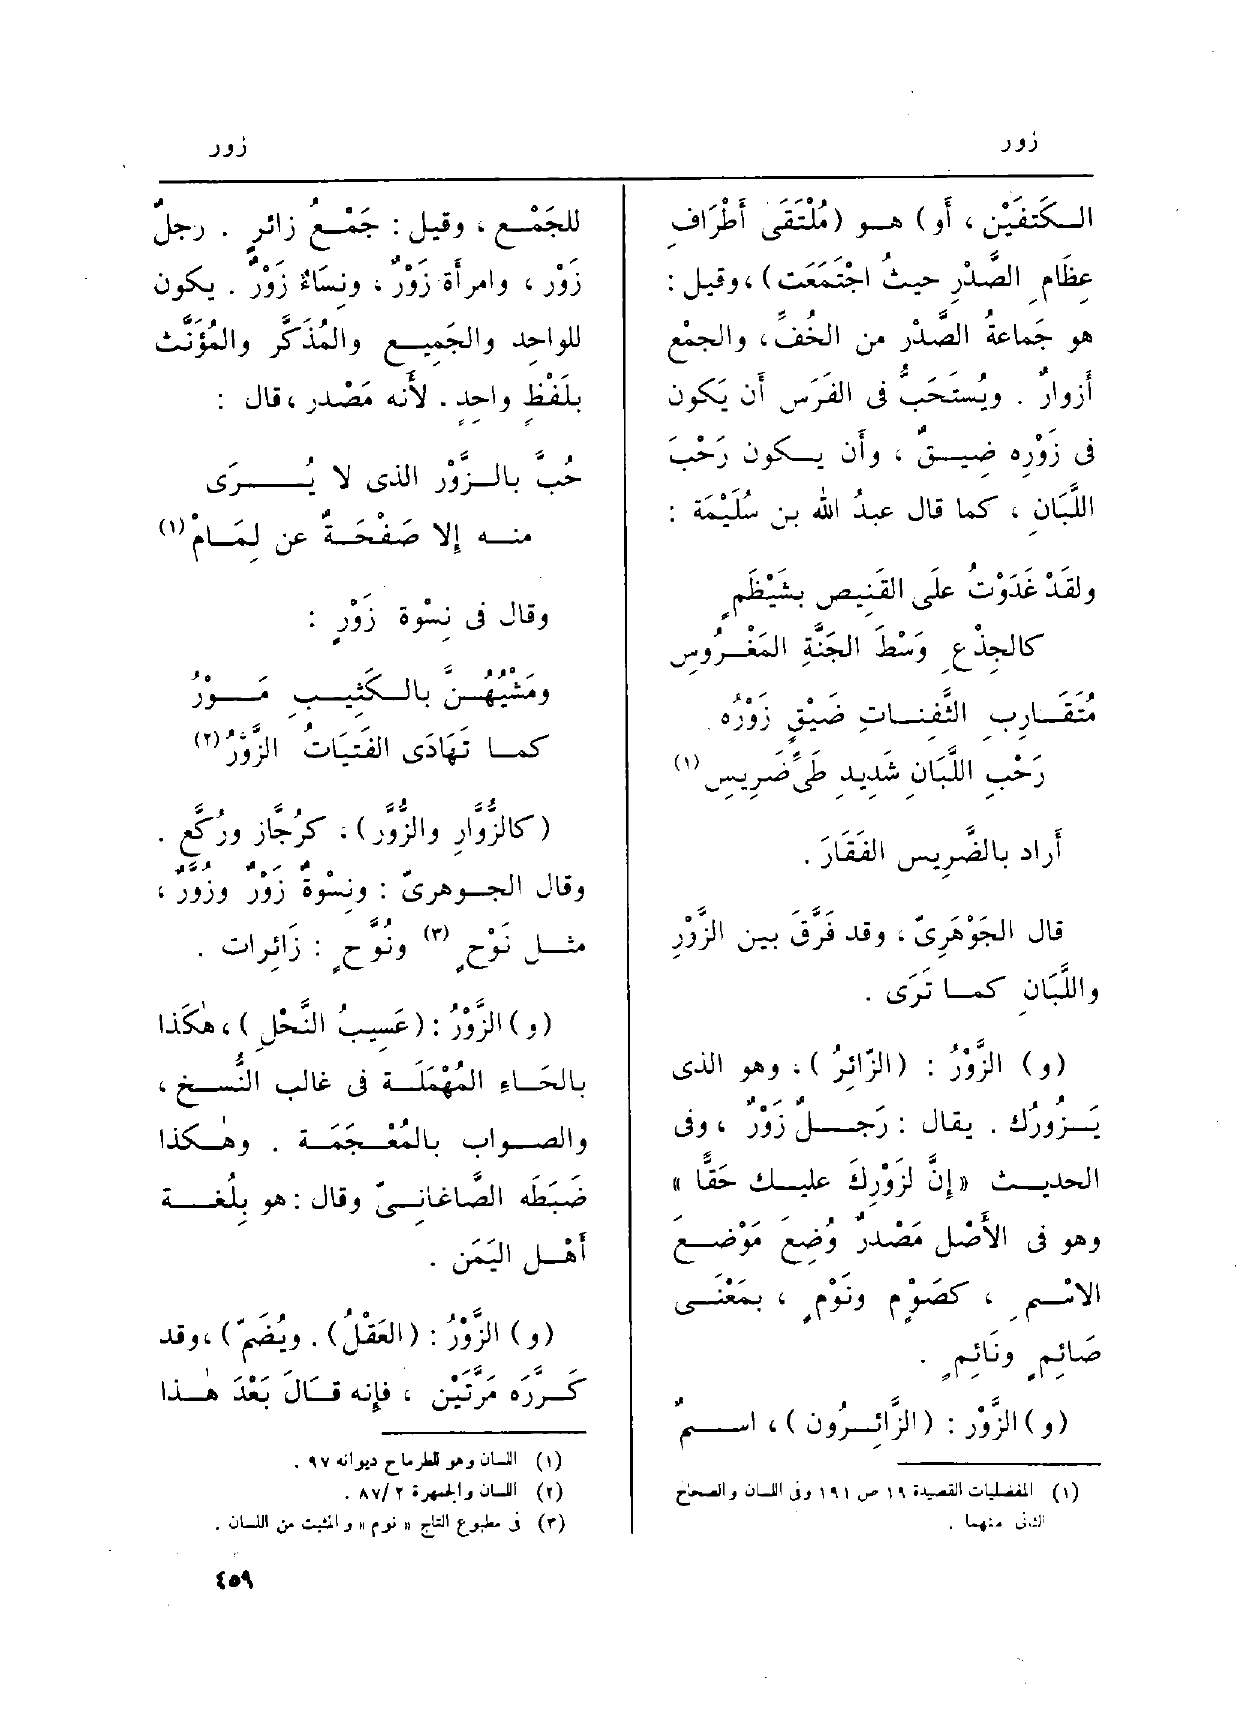 زور
زور
الـكتفَيْن ، أَو) هـو (مُلْتَقَى أَطْرَافِ
عِظَامِ الصَّدْرِ حيثُ اجْتَمَعَت) ، وقيل :
هو جَماعةُ الصَّدْرِ من الخُفِّ ، والجمْع
أَزوارٌ . ويُستَحَبُّ فى الفَرَس أَن يَكون
فى زَوْرِه ضِيـقٌ ، وأَن يـكون رَحْبَ
اللَّبَانِ ، كما قال عبدُ الله بن سُلَيْمَة :
ولقَدْ غَدَوْتُ علَى القَنِيص بشَيْظَمٍ
كالجِذْعِ وَسْطَ الجَنَّةِ المَغْـرُوسِ
مُتَقَـارِبِ الثَّفِنـاتِ ضَيْقٍ زَوْرُه
رَحْبِ اللَّبَانِ شَدِيدِ طَىِّ ضَرِيسِ (١)
أَراد بالضَّرِيس الفَقَارَ .
قال الجَوْهَرِىّ ، وقد فَرَّقَ بين الزَّوْرِ
واللَّبَانِ كمـا تَرَى .
(و) الزَّوْرُ : (الزّائِرُ) ، وهو الذى
يَـزُورُك . يقال : رَجـلٌ زَوْرٌ ، وفى
الحديـث «إِنَّ لزَوْرِكَ عليـك حَقًّا »
وهو فى الأَصْل مَصْدرٌ وُضِعَ مَوْضِـعَ
الاسْـمِ ، كصَوْمٍ ونَوْمٍ ، بمَعْنَـى
صَائِمٍ ونَائِمٍ .
(و) الزَّوْر : (الزَّائِـرُون) ، اسـمٌ
(١) المفضليات القصيدة ١٩ ص ١٩١ وفى اللسان والصحاح
الثانى منهما .
للجَمْـع ، وقيل : جَمْـعُ زائرٍ . رجلٌ
زَوْر ، وامرأَة زَوْرٌ ، ونِسَاءٌ زَوْرٌ . يكون
للواحِد والجَمِيـع والمُذَكَّر والمُؤَنَّث
بلَفْظٍ واحِدٍ . لأَنه مَصْدر ، قال :
حُبَّ بالـزَّوْر الذى لا يُـــرَى
منـه إِلا صَفْحَـةٌ عن لِمَـامْ (١)
وقال فى نِسْوة زَوْرٍ :
ومَشْيُهُـنَّ بالـكَثِيـبِ مَــوْرُ
كمـا تَهَادَى الفَتَيَاتُ الزَّوْرُ (٢)
(كالزُّوَّارِ والزُّوَّر) ، كرُجَّاز ورُكَّع .
وقال الجـوهرىّ : ونِسْوةٌ زَوْرٌ وزُوَّرٌ ،
مثـل نَوْحٍ (٣) ونُوَّحٍ : زَائِرات .
(و) الزَّوْرُ : (عَسِيبُ النَّحْلِ) ، هكَذا
بالحَـاءِ المُهْمَلَـة فى غالب النُّسـخِ ،
والصـواب بالمُعْـجَمَـة . وهٰـكذا
ضَبَطَه الصَّاغانِـىّ وقال : هو بِلُغـة
أَهْـل اليَمَن .
(و) الزَّوْرُ : (العَقْلُ) . ويُضَمّ) ، وقد
كـرَّرَه مَرَّتَيْن ، فإِنه قـالَ بَعْدَ هٰـذا
(١) اللسان وهو للطرماح ديوانه ٩٧ .
(٢) اللسان والجمهرة ٢ /٨٧ .
(٣) فى مطبوع التاج « نوم » والمثبت من اللسان .
٤٥٩